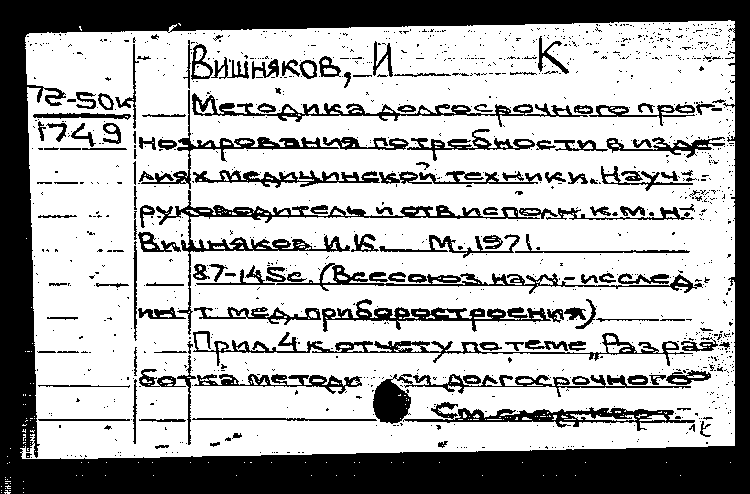 Вишняков, И К
72-50к
1749
Методика долгосрочного прог-
нозирования потребности в изде-
лиях медицинской техники. Науч.
руководитель и отв. исполн. к.м.н.
Вишняков И.К. М., 1971.
87-145с. (Всесоюз. науч.-исслед.
ин-т мед. приборостроения)
Прил. 4 к отчету по теме „Разра-
ботка методики долгосрочного
См. след. карт.